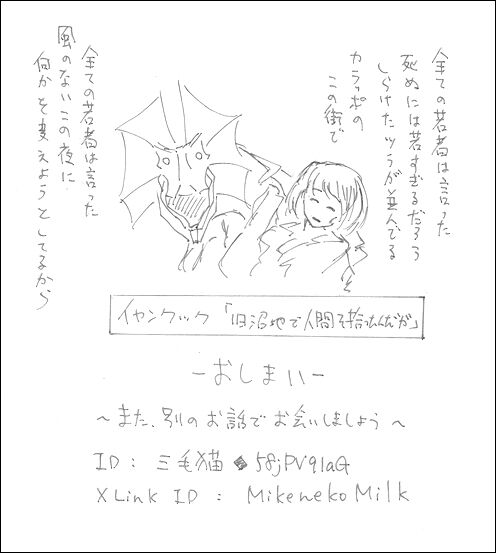 全ての若者は言った
死ぬには若すぎるだろう
しらけたツラが並んでる
カラッポの
この街で
全ての若者は言った
風のないこの夜に
何かを変えようとしてるから
イャンクック「旧沼地で人間を拾ったんだが」
ーおしまいー
～また、別のお話でお会いしましょう～
ID : 三毛猫◆58jPV91aG
XLink ID : MikenekoMilk